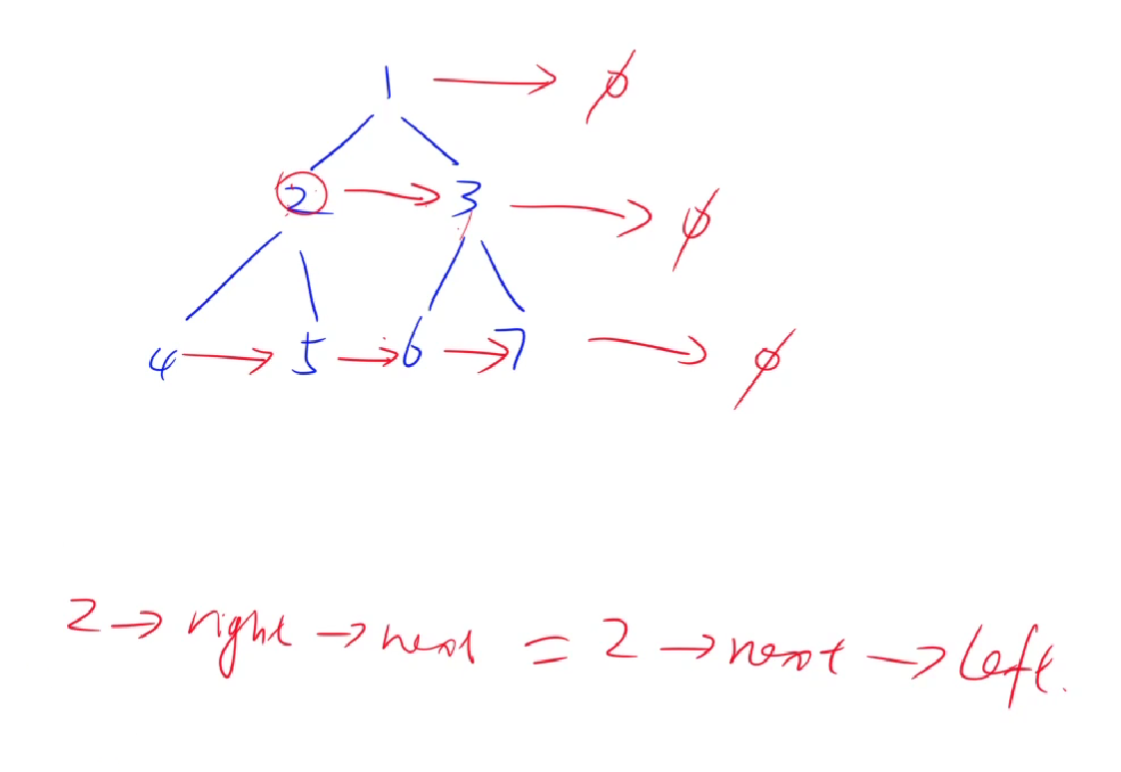 1 → ∅
2 → 3 → ∅
4 → 5 → 6 → 7 → ∅
2 → right → next = 2 → next → left.